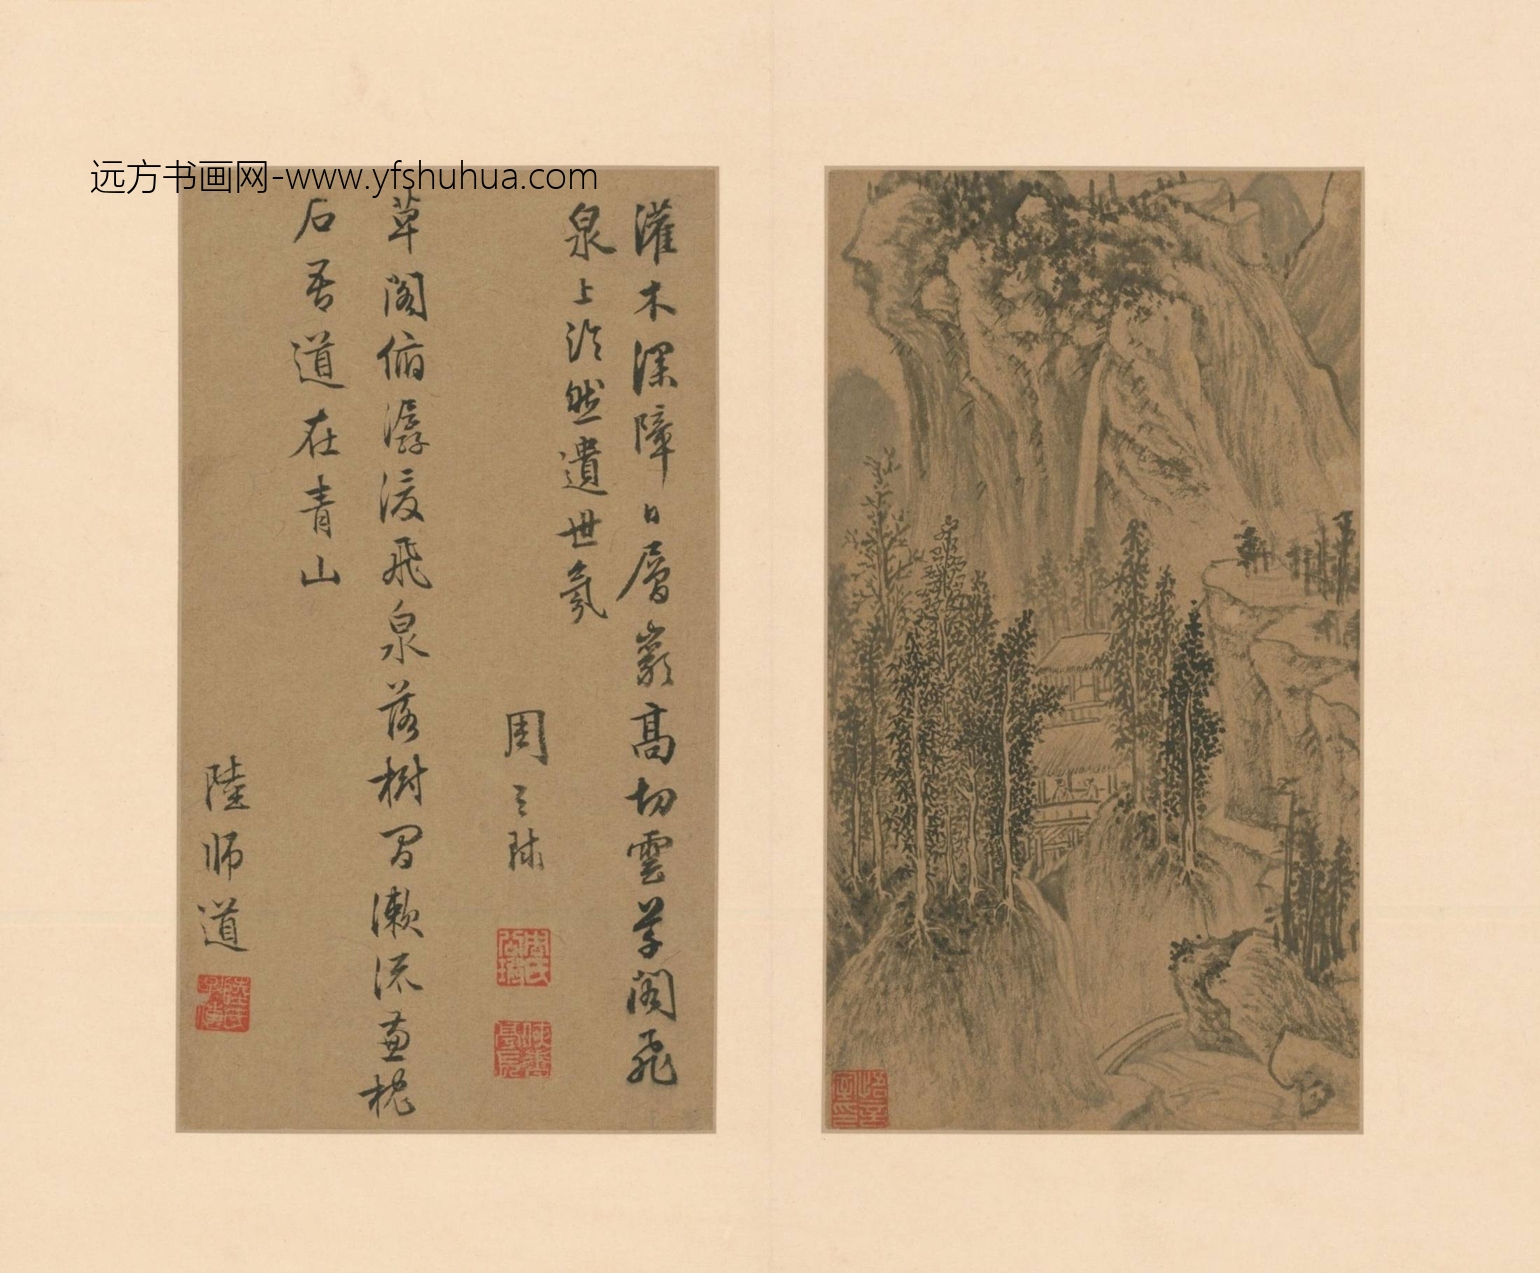 远方书画网-www.yfshuhua.com
灌木深障日層巖高切雲草閣飛
泉上泠然遺世氛
周天球
草閣俯潺湲飛泉落樹間漱流兼枕
石吾道在青山
陸師道